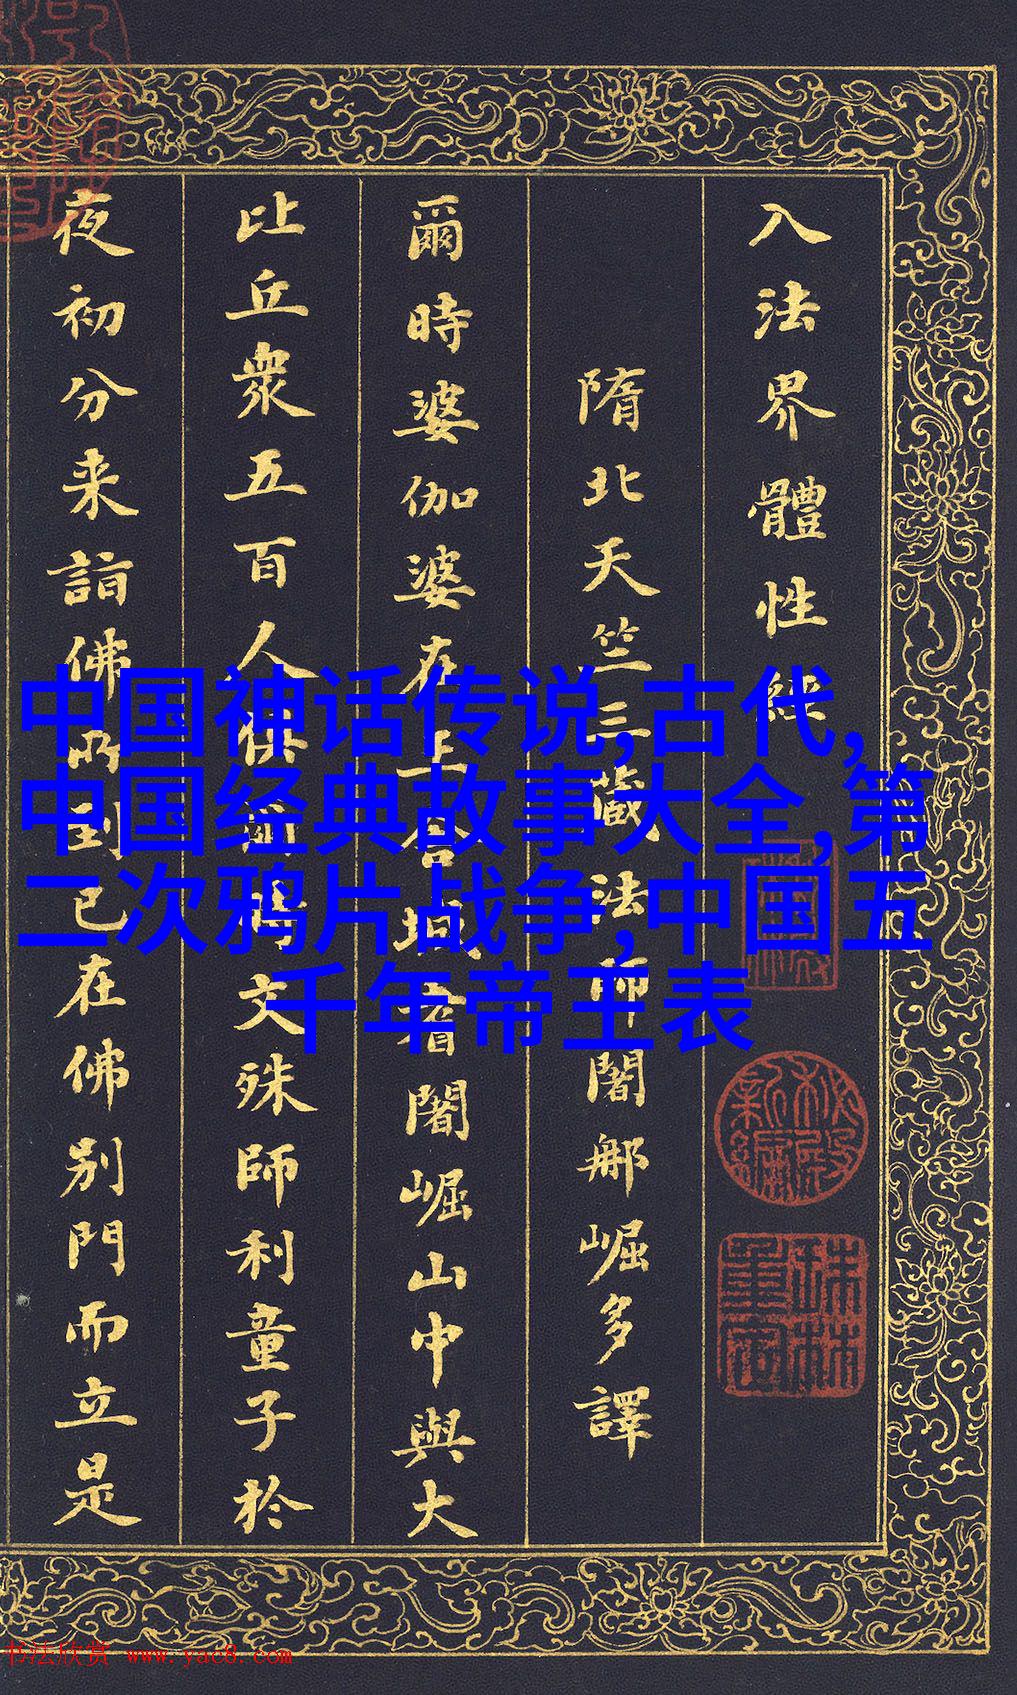 入法界體性經
隋北天竺三藏法師闍那崛多譯
爾時婆伽婆在王舍城耆闍崛山中與大
比丘衆五百人俱爾時文殊師利童子於
夜初分来詣佛所到已在佛別門而立是
中国神话传说,古代,
中国经典故事大全,第
二次鸦片战争,中国五
千年帝王表
秘殿
新編
珠林
重定
书法欣赏 www.yac8.com